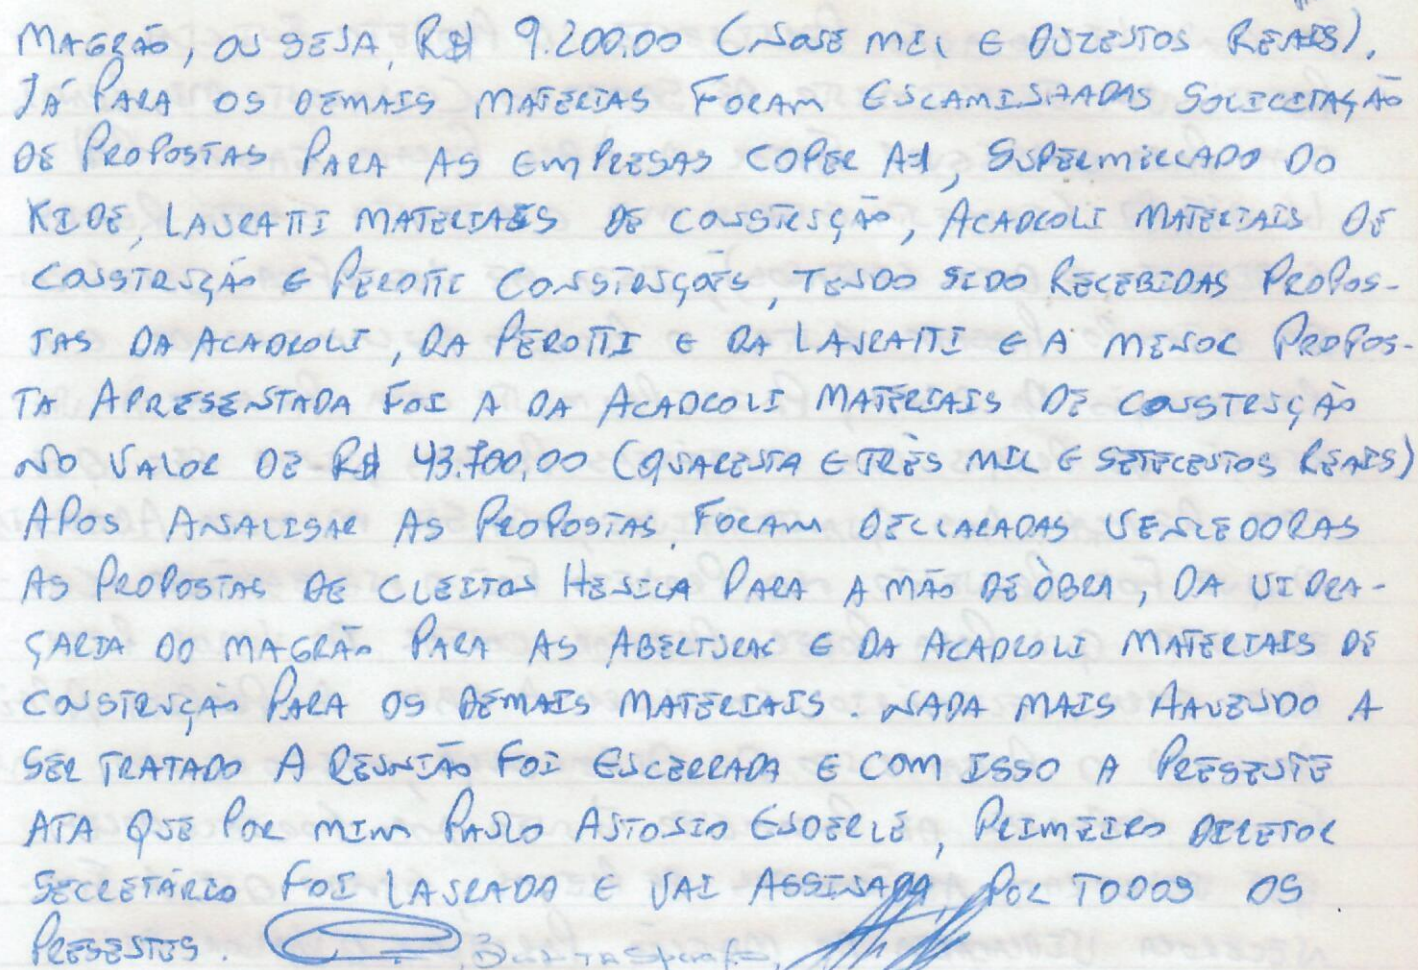 MAGRÃO, OU SEJA, R$ 9.200,00 (NOVE MIL E DUZENTOS REAIS).
JÁ PARA OS DEMAIS MATERIAS FORAM ENCAMINHADAS SOLICITAÇÃO
DE PROPOSTAS PARA AS EMPRESAS COPER A1, SUPERMERCADO DO
KIDE, LAURATTI MATERIAIS DE CONSTRUÇÃO, ACADROLI MATERIAIS DE
CONSTRUÇÃO E PEROTTI CONSTRUÇÕES, TENDO SIDO RECEBIDAS PROPOS-
TAS DA ACADROLI, DA PEROTTI E DA LAURATTI E A MENOR PROPOS-
TA APRESENTADA FOI A DA ACADROLI MATERIAIS DE CONSTRUÇÃO
NO VALOR DE R$ 43.700,00 (QUARENTA E TRÊS MIL E SETECENTOS REAIS)
APOS ANALISAR AS PROPOSTAS, FORAM DECLARADAS VENCEDORAS
AS PROPOSTAS DE CLEITON HENICA PARA A MÃO DE OBRA, DA VIDRA-
ÇARIA DO MAGRÃO PARA AS ABERTURAS E DA ACADROLI MATERIAIS DE
CONSTRUÇÃO PARA OS DEMAIS MATERIAIS. NADA MAIS HAVENDO A
SER TRATADO A REUNIÃO FOI ENCERRADA E COM ISSO A PRESENTE
ATA QUE POR MIM PAULO ANTONIO ENDERLE, PRIMEIRO DIRETOR
SECRETÁRIO FOI LAVRADA E VAI ASSINADA POR TODOS OS
PRESENTES.